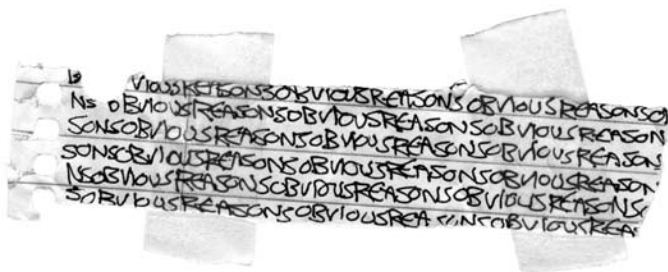 VIOUSREASONSOBVIOUSREASONSOBVIOUSREASONSO
NS OBVIOUSREASONSOBVIOUSREASONSOBVIOUSREASON
SONSOBVIOUSREASONSOBVIOUSREASONSOBVIOUSREASON
SONSOBVIOUSREASONSOBVIOUSREASONSOBVIOUSREASON
NSOBVIOUSREASONSOBVIOUSREASONSOBVIOUSREASONSO
SOBVIOUSREASONSOBVIOUSREASONSOBVIOUSREA